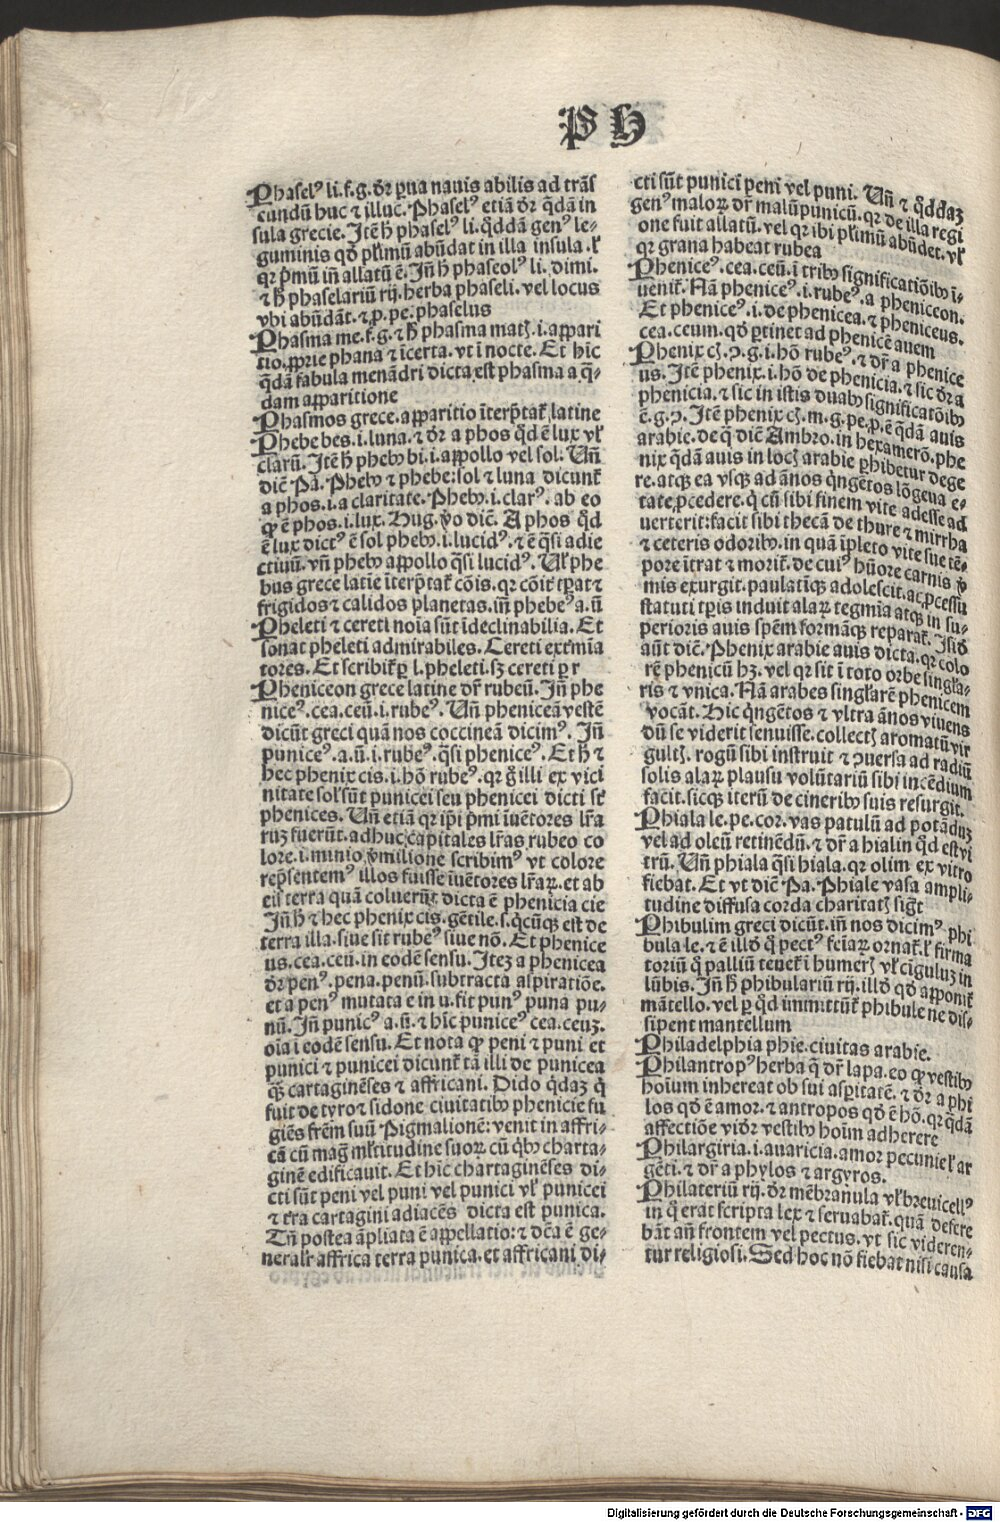 P H
Phaselꝰ li. f. g. dr̄ ꝑua nauis abilis ad trāſ
eundū huc ⁊ illuc. Phaselꝰ etiā dr̄ q̄dā in
ſula grecie. Itē h̄ phaselꝰ li. q̄ddā genꝰ le⸗
guminis qd̓ pl̓imū abūdat in illa inſula. l̓
qr p̄mū in̄ allatū ē. In̄ h̄ phaseolꝰ li. dimi.
⁊ h̄ phaselariū rij. herba phaseli. vel locus
vbi abūdāt. ⁊ ꝓ. pe. phaselus
Phasma me. f. g. ⁊ h̄ phasma matꝭ. i. appari
tio. ꝓprie phana ⁊ īcerta. vt ī nocte. Et hīc
q̄dā fabula menādri dicta eſt phasma a q̄⸗
dam apparitione
Phasmos grece. apparitio īterp̄tat̄ latine
Phebe bes. i. luna. ⁊ dr̄ a phos qd̓ ē lux vl̓
clarū. Itē h̄ phebꝰ bi. i. appollo vel sol. Un̄
diē Pa. Phebꝰ ⁊ phebe: sol ⁊ luna dicunt̄
a phos. i. a claritate. Phebꝰ. i. clarꝰ. ab eo
ꝙ ē phos. i. lux. Hug. ꝟo diē. A phos qd̓
ē lux dictꝰ ē sol phebꝰ. i. lucidꝰ. ⁊ ē q̄si adie
ctiuū. vn̄ phebꝰ appollo q̄si lucidꝰ. Ul̓ phe
bus grece latie īterp̄tat̄ cōis. qr cōit̓ tꝑat ⁊
frigidos ⁊ calidos planetas. in̄ phebeꝰ a. ū
Pheleti ⁊ cereti noīa sūt īdeclinabilia. Et
ſonat pheleti admirabiles. Cereti extm̄ia
tores. Et scribit̄ ꝑ l. pheleti. sꝫ cereti ꝑ r
Pheniceon grece latine dr̄ rubeū. In̄ phe
niceꝰ. cea. ceū. i. rubeꝰ. Un̄ pheniceā veſtē
dicūt greci quā nos coccineā dicimꝰ. In̄
puniceꝰ. a. ū. i. rubeꝰ. q̄si pheniceꝰ. Et h̄ ⁊
hec phenix cis. i. hō rubeꝰ. qr g̊ illi ex vici
nitate sol̓ sūt punicei seu phenicei dicti ſt̄
phenices. Un̄ etiā qr ip̄i p̄mi īuētores lr̄a
ruꝫ fuerūt. adhuc capitales lr̄as rubeo co
lore. i. minio ꝟmilione scribimꝰ vt colore
rep̄sentemꝰ illos fuiſſe īuētores lr̄aꝝ. et ab
eis terra quā coluerūt. dicta ē phenicia cie
In̄ h̄ ⁊ hec phenix cis. gētile. s. q̄cūqꝫ eſt de
terra illa. siue sit rubeꝰ siue nō. Et phenice
us. cea. ceū. in eodē sensu. Iteꝫ a phenicea
dr̄ penꝰ. pena. penū. subtracta aspiratiōe.
et a penꝰ mutata e in u. fit punꝰ puna pu⸗
nū. In̄ punicꝰ a. ū. ⁊ hīc puniceꝰ cea. ceuꝫ.
oīa ī eodē sensu. Et nota ꝙ peni ⁊ puni et
punici ⁊ punicei dicunt̄ tā illi de punicea
q̄ꝫ cartaginēses ⁊ affricani. Dido q̄daꝫ q̄
fuit de tyro ⁊ sidone ciuitatibꝰ phenicie fu
giēs frēm suū Pigmalionē: venit in affri⸗
cā cū maḡ ml̓titudine suoꝝ. cū q̓bꝰ charta⸗
ginē edificauit. Et hīc chartaginēses di⸗
cti sūt peni vel puni vel punici vl̓ punicei
⁊ tr̄a cartagini adiacēs dicta eſt punica.
Tn̄ poſtea āpliata ē appellatio: ⁊ dc̄a ē ge⸗
neral̓r affrica terra punica. et affricani di⸗
cti sūt punici peni vel puni. Un̄ ⁊ q̄ddaꝫ
genꝰ maloꝝ dr̄ malū punicū. qr de illa regi
one fuit allatū. vel qr ibi pl̓imū abūdet. vl̓
qr grana habeat rubea
Pheniceꝰ. cea. ceū. ī tribꝰ significatiōibꝰ ī⸗
uenit̄. Nā pheniceꝰ. i. rubeꝰ. a pheniceon.
Et pheniceꝰ. i. de phenicea. ⁊ pheniceus.
cea. ceum. qd̓ ꝑtinet ad phenicē auem
Phenix cꝭ. ↄ. g. i. hō rubeꝰ. ⁊ dr̄ a phenice
us. Itē phenix. i. hō de phenicia. ⁊ sic dr̄ a
phenicia. ⁊ sic in iſtis duabꝰ significatōibꝰ
ē. g. ↄ. Itē phenix cꝭ. m. g. pe. ꝓ. ē q̄dā auis
arabie. de q̄ diē Ambro. in hexamerō. phe
nix q̄dā auis in locꝭ arabie ꝑhibetur dege
re. atqꝫ ea vsqꝫ ad ānos q̄ngētos lōgeua e⸗
tate ꝓcedere. q̄ cū sibi finem vite adeſſe ad
uerterit: facit sibi thecā de thure ⁊ mirrha
⁊ ceteris odoribꝰ. in quā īpleto vite sue tē⸗
pore ītrat ⁊ morit̄. de cuiꝰ hūore carnis ꝟ
mis exurgit. paulatīqꝫ adolescit. ac ꝓceſſu
ſtatuti tꝑis induit alaꝝ tegmīa atqꝫ in su⸗
perioris auis spēm formāqꝫ reparat̄. Isid̓
aūt diē. Phenix arabie auis dicta. qr colo
rē phenicū hꝫ. vel qr sit ī toto orbe singla⸗
ris ⁊ vnica. Nā arabes singl̓arē phenicem
vocāt. Hic q̄ngētos ⁊ vltra ānos viuens
dū se viderit senuiſſe. collectꝭ aromatū vir
gultꝭ. rogū sibi inſtruit ⁊ ↄuersa ad radiū
solis alaꝝ plausu volūtariū sibi incēdium
facit. sicqꝫ iterū de cineribꝰ suis resurgit.
Phiala le. pe. cor. vas patulū ad potādūꝫ
vel ad oleū retinēdū. ⁊ dr̄ a hialin qd̓ eſt vi
trū. Un̄ phiala q̄si hiala. qr olim ex vitro
fiebat. Et vt diē Pa. Phiale vasa ampli⸗
tudine diffusa corda charitatꝭ siḡt
Phibulim greci dicūt. in̄ nos dicimꝰ phi
bula le. ⁊ ē illd̓ q̄ pectꝰ feīaꝝ ornat̄. l̓ firma
toriū q̄ palliū tenet̄ ī humerꝭ vl̓ cīguluꝫ in
lūbis. In̄ h̄ phibulariū rij. illd̓ qd̓ apponit̄
mātello. vel ꝑ qd̓ immittūt̄ phibule ne dis⸗
sipent mantellum
Philadelphia phie. ciuitas arabie.
Philantropꝰ herba q̄ dr̄ lapa. eo ꝙ veſtibꝰ
hoīum inhereat ob sui aspitatē. ⁊ dr̄ a phi
los qd̓ ē amor. ⁊ antropos qd̓ ē hō. qr q̄dā
affectiōe vidr̄ veſtibꝰ hoīm adherere
Philargiria. i. auaricia. amor pecunie l̓ ar
gēti. ⁊ dr̄ a phylos ⁊ argyros.
Philateriū rij. dr̄ mēbranula vl̓ breuicellꝰ
in q̄ erat scripta lex ⁊ seruabat̄. quā defere
bāt an̄ frontem vel pectus. vt sic videren⸗
tur religiosi. Sed hoc nō fiebat nisi causa
Digitalisierung gefördert durch die Deutsche Forschungsgemeinschaft - DFG